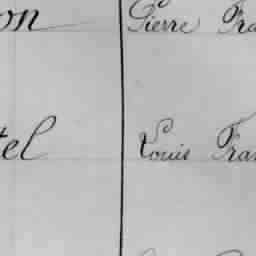 on Pierre Fra
tel Louis Fran